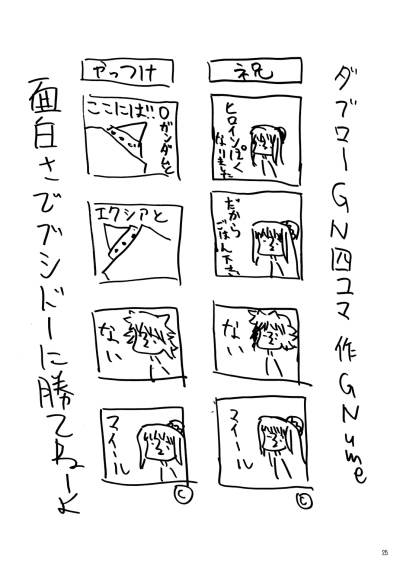 ダブローGN四コマ 作GNume
祝
ヒロインぽく
なりました
だから
ごはん下さい
ない
マイール
C
やっつけ
ここには!!
Oガンダムと
エクシアと
ない
マイール
C
面白さでブシドーに勝てねーよ
25